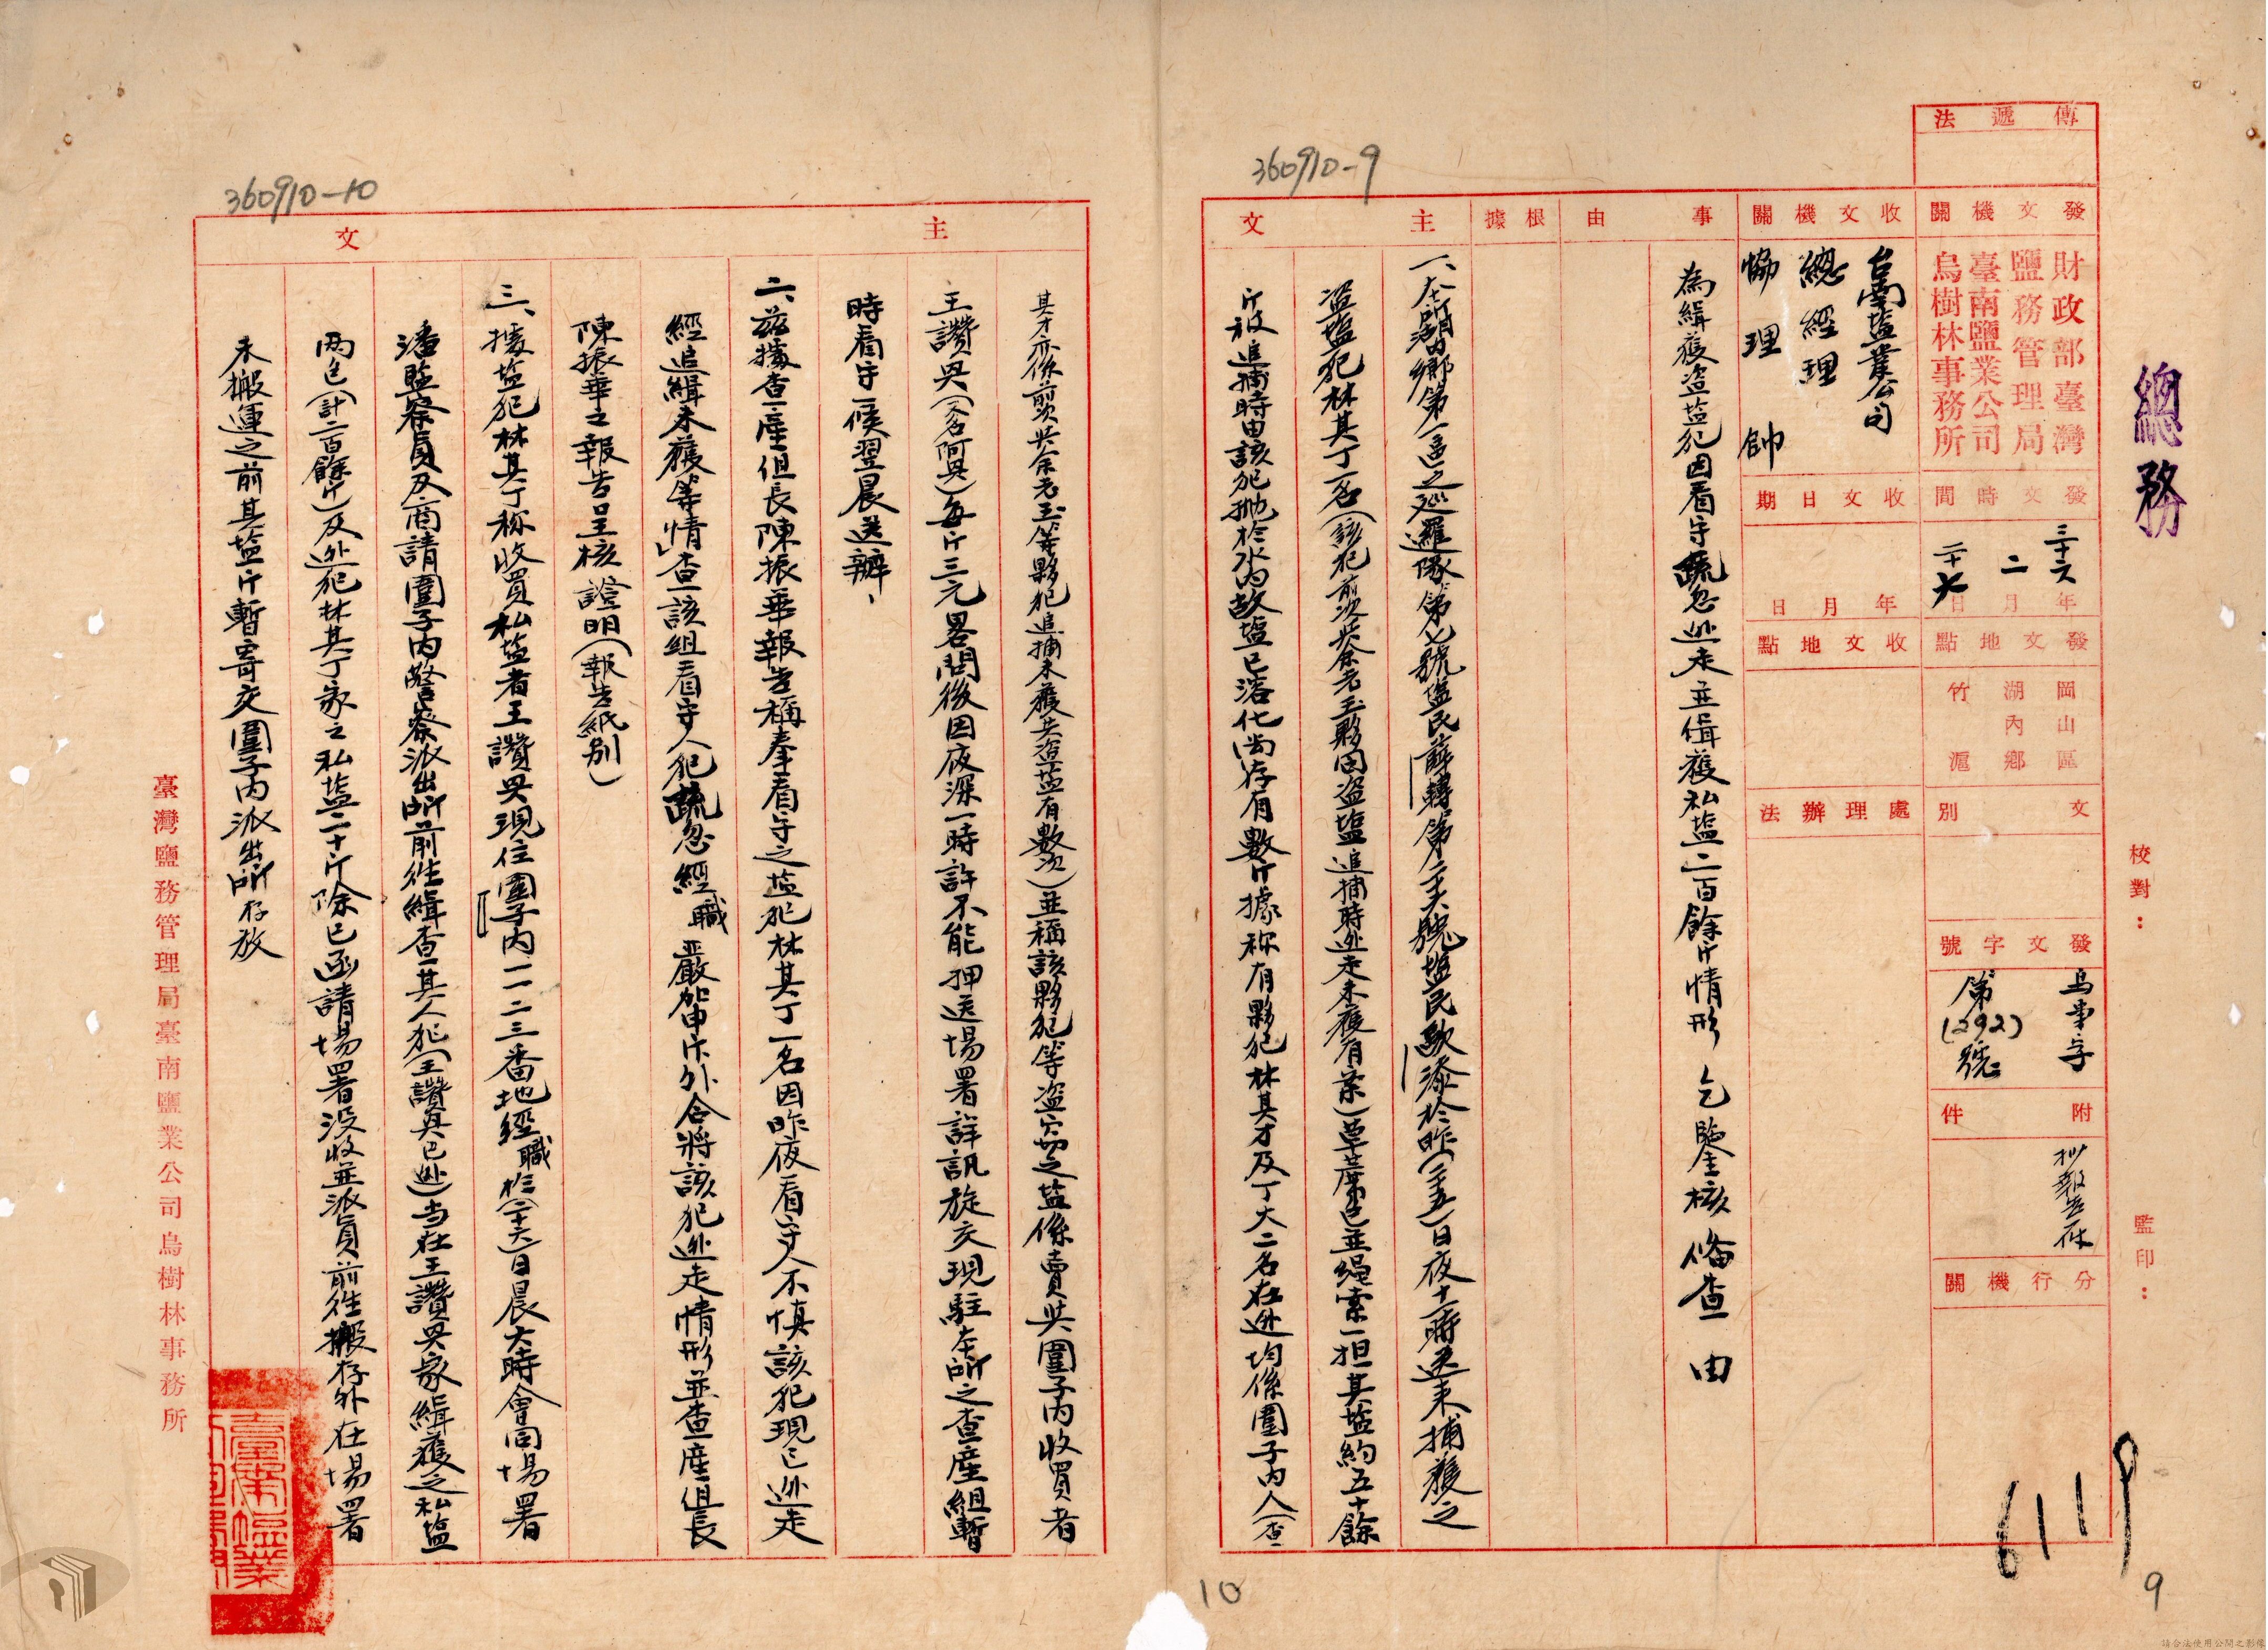 總務
校對：
監印：
傳遞法
發文機關
財政部臺灣
鹽務管理局
臺南鹽業公司
烏樹林事務所
發文時間
三十六年
二月
二十六日
發文地點
岡山區
湖內鄉
竹滬
文別
發文字號
烏事字
第(292)號
附件
抄報告一件
分行機關
收文機關
台南塩業公司
總經理
協理
收文日期
年月日
收文地點
處理辦法
事由
為緝獲盜塩犯因看守疏忽逃走並緝獲私塩二百餘斤情形乞鑒核偹查由
根據
主文
360910-9
一、本所湖內鄉第一區之巡邏隊第七號塩民薛轉第二十六號塩民歐漆於昨(二十五)日夜十一時送來捕獲之
盜塩犯林其丁一名(該犯前次吳余老玉夥同盜塩追捕時逃走未獲有案)草蓆包並繩索一担其塩約五十餘
斤被追捕時由該犯拋於水內故塩已溶化尚存有數斤據称有夥犯林其才及丁大二名在逃均係圍子內人(查
360910-10
主文
其才亦係前次吳余老玉等夥犯追捕未獲共盜塩有數次)並稱該夥犯等盜窃之塩係賣與圍子內收買者
王讚興(又名阿興)每斤三元畧問後因夜深一時許不能押送場署詳訊旋交現駐本所之查產組暫
時看守候翌晨送辦、
二、茲據查產組長陳振華報告稱奉看守之塩犯林其丁一名因昨夜看守人不慎該犯現已逃走
經追緝未獲等情」查該組看守人犯疏忽經職嚴加申斥外合將該犯逃走情形並查產組長
陳振華之報告呈核證明(報告紙別)
三、據塩犯林其丁称收買私塩者王讚興現住圍子內一一二三番地經職於(二十六)日晨六時會同場署
潘監察員及商請圍子內警察派出所前往緝查其人犯(王讚興已逃)当在王讚興家緝獲之私塩
両包(計二百餘斤)及逃犯林其丁家之私塩二十斤除已函請場署没收並派員前往搬存外在場署
未搬運之前其塩斤暫寄交圍子內派出所存放
臺灣鹽務管理局臺南鹽業公司烏樹林事務所
6119
9
10
請合法使用公開之影像